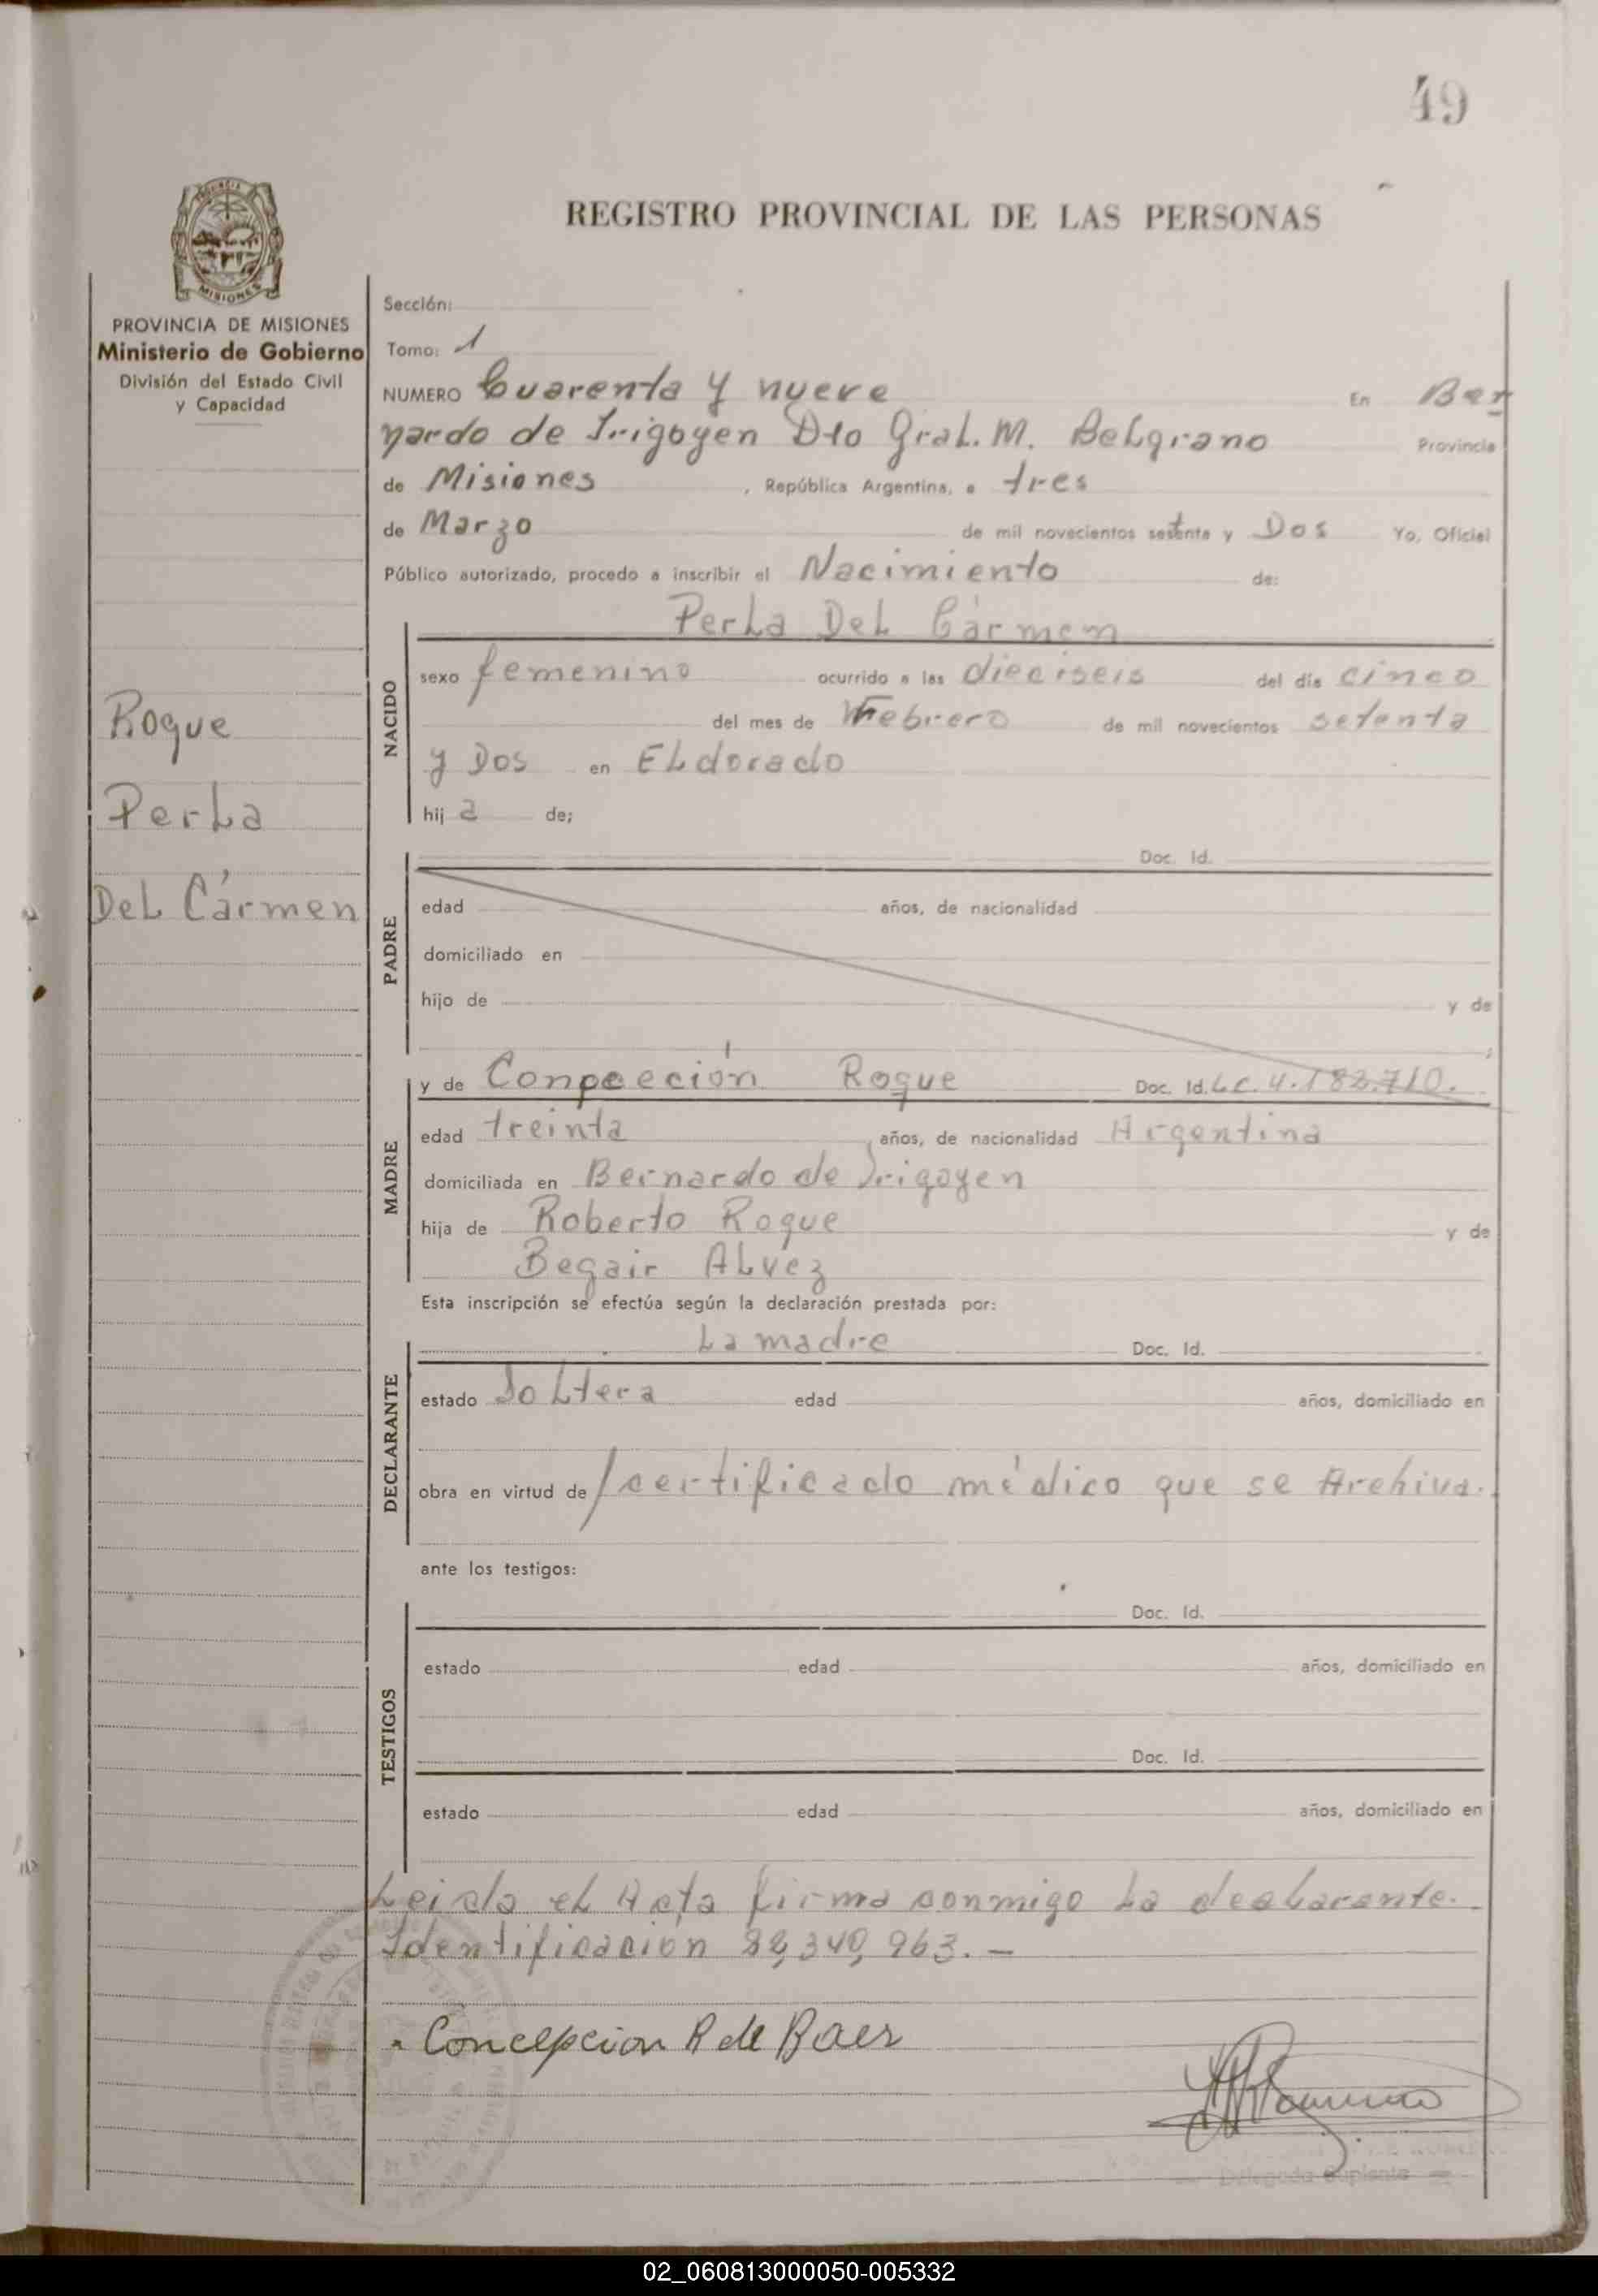 49
REGISTRO PROVINCIAL DE LAS PERSONAS
MISIONES
PROVINCIA DE MISIONES
Ministerio de Gobierno
División del Estado Civil
y Capacidad
Roque
Perla
Del Cármen
Sección:
Tomo: 1
NUMERO Cuarenta y nueve En Ber
nardo de Irigoyen Dto Gral. M. Belgrano Provincia
de Misiones , República Argentina, a tres
de Marzo de mil novecientos setenta y Dos Yo, Oficial
Público autorizado, procedo a inscribir el Nacimiento de:
Perla Del Cármen
NACIDO
sexo femenino ocurrido a las dieciseis del día cinco
del mes de Febrero de mil novecientos setenta
y Dos en Eldorado
hij a de;
PADRE
Doc. Id.
edad años, de nacionalidad
domiciliado en
hijo de y de
MADRE
y de Conpección Roque Doc. Id. L.C. 4.182.710.
edad treinta años, de nacionalidad Argentina
domiciliada en Bernardo de Irigoyen
hija de Roberto Roque y de
Begair Alvez
Esta inscripción se efectúa según la declaración prestada por:
DECLARANTE
La madre Doc. Id.
estado Soltera edad años, domiciliado en
obra en virtud de / certificado médico que se Archiva.
ante los testigos:
TESTIGOS
Doc. Id.
estado edad años, domiciliado en
Doc. Id.
estado edad años, domiciliado en
Leida el Acta firma conmigo la declarante.
Identificación 22,340,963. —
Concepcion R de Baer
Delegado Suplente
02_060813000050-005332